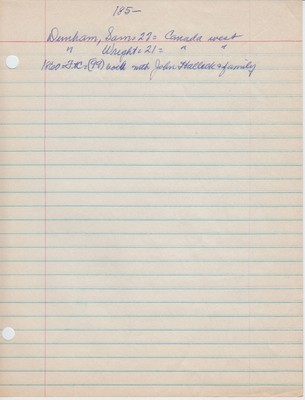 185-
Dunham, Sam = 27 = Canada west
" Wright = 21 = " "
1850 (99) work with John Hallock & family